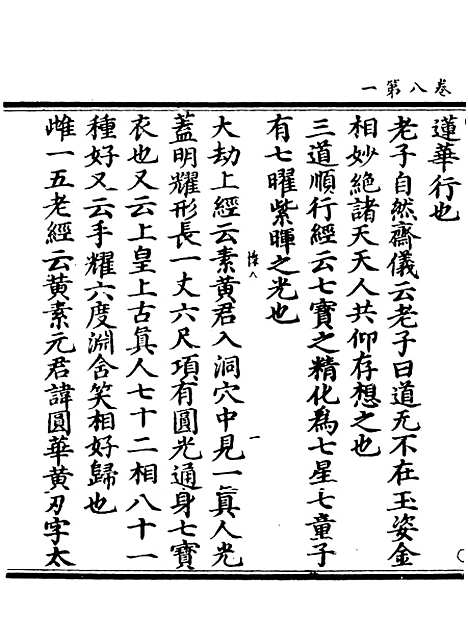 卷八第一
蓮華行也
老子自然齋儀云老子曰道无不在玉姿金
相妙絕諸天天人共仰存想之也
三道順行經云七寶之精化爲七星七童子
有七曜紫暉之光也
大劫上經云素黃君入洞穴中見一眞人光
蓋明耀形長一丈六尺項有圓光通身七寶
衣也又云上皇上古眞人七十二相八十一
種好又云手耀六度淵含笑相好歸也
雌一五老經云黃素元君諱圓華黃刃字太